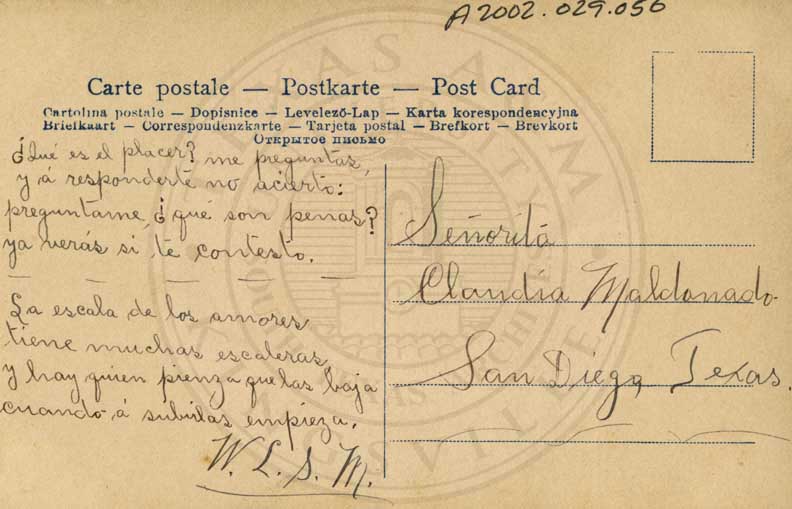 A2002.029.056
Carte postale — Postkarte — Post Card
Cartolina postale — Dopisnice — Levelező-Lap — Karta korespondencyjna
Briefkaart — Correspondenzkarte — Tarjeta postal — Brefkort — Brevkort
Открытое письмо
¿Qué es el placer? me preguntas,
y á responderte no acierto:
preguntame ¿qué son penas?
ya verás si te contesto.
La escala de los amores
tiene muchas escaleras,
y hay quien pienza que las baja
cuando á subirlas empieza.
W. L. S. M.
Señorita
Claudia Maldonado
San Diego, Texas.